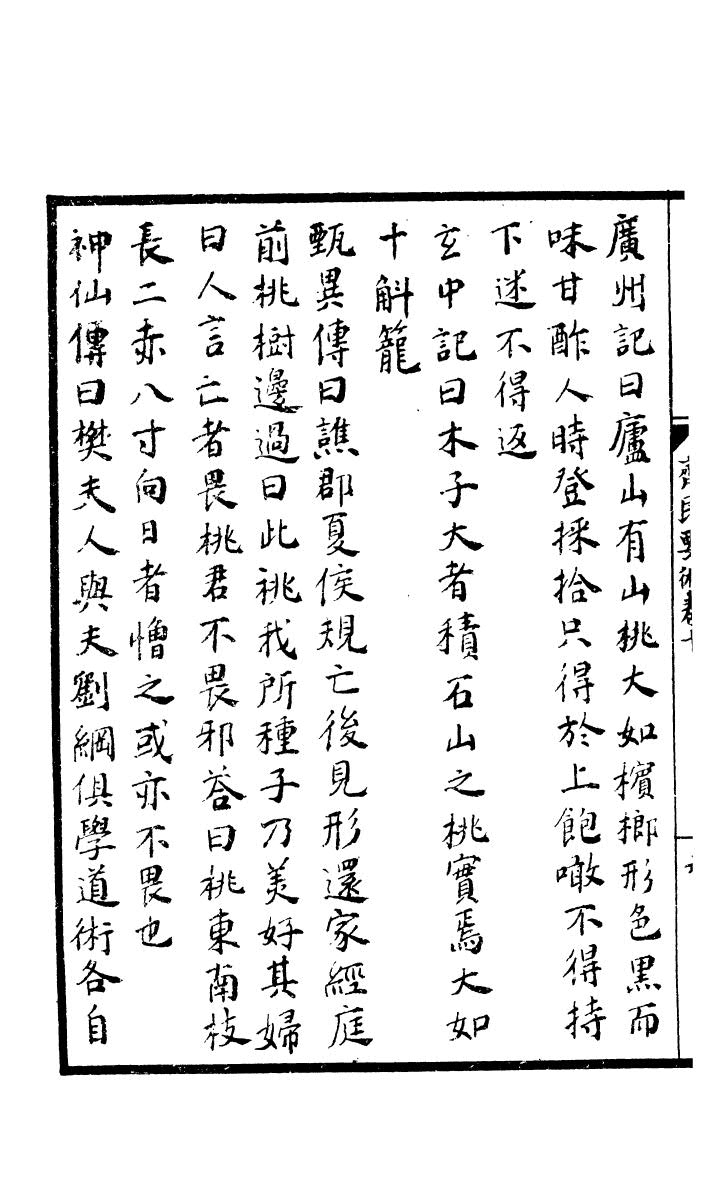 廣州記曰廬山有山桃大如檳榔形色黑而
味甘酢人時登採拾只得於上飽噉不得持
下迷不得返
玄中記曰木子大者積石山之桃實焉大如
十斛籠
甄異傳曰譙郡夏侯規亡後見形還家經庭
前桃樹邊過曰此桃我所種子乃美好其婦
曰人言亡者畏桃君不畏邪答曰桃東南枝
長二赤八寸向日者憎之或亦不畏也
神仙傳曰樊夫人與夫劉綱俱學道術各自
齊民要術卷十